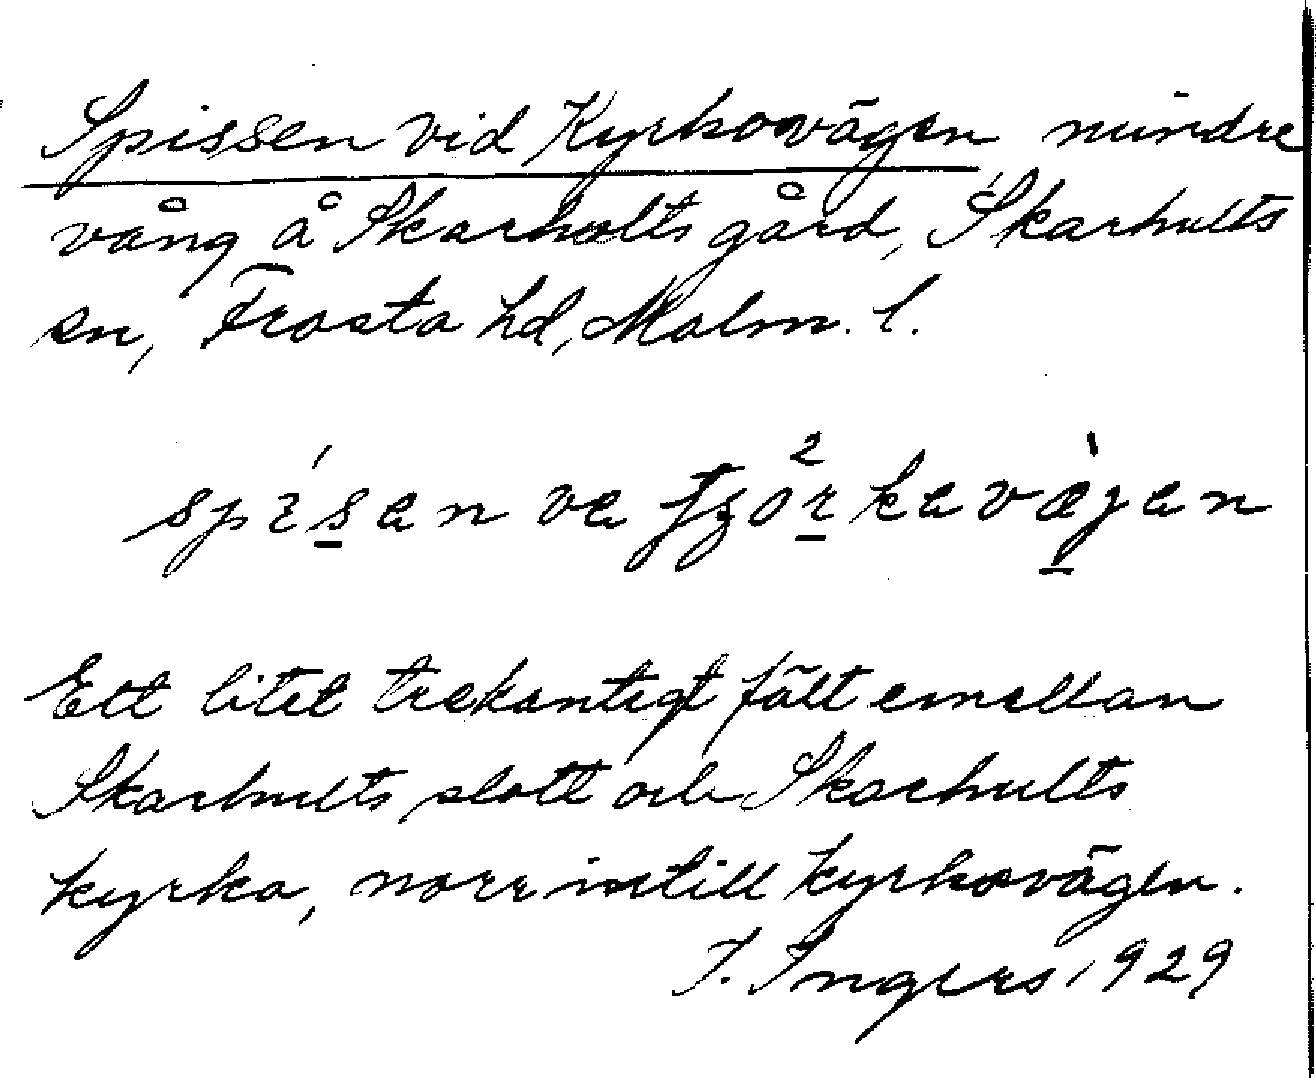 Spissen vid Kyrkovägen mindre
vång å Skarhults gård, Skarhults
sn, Frosta hd, Malm. l.
Ett litet trekantigt fält emellan
Skarhults slott och Skarhults
kyrka, norr intill kyrkovägen.
I. Ingers 1929